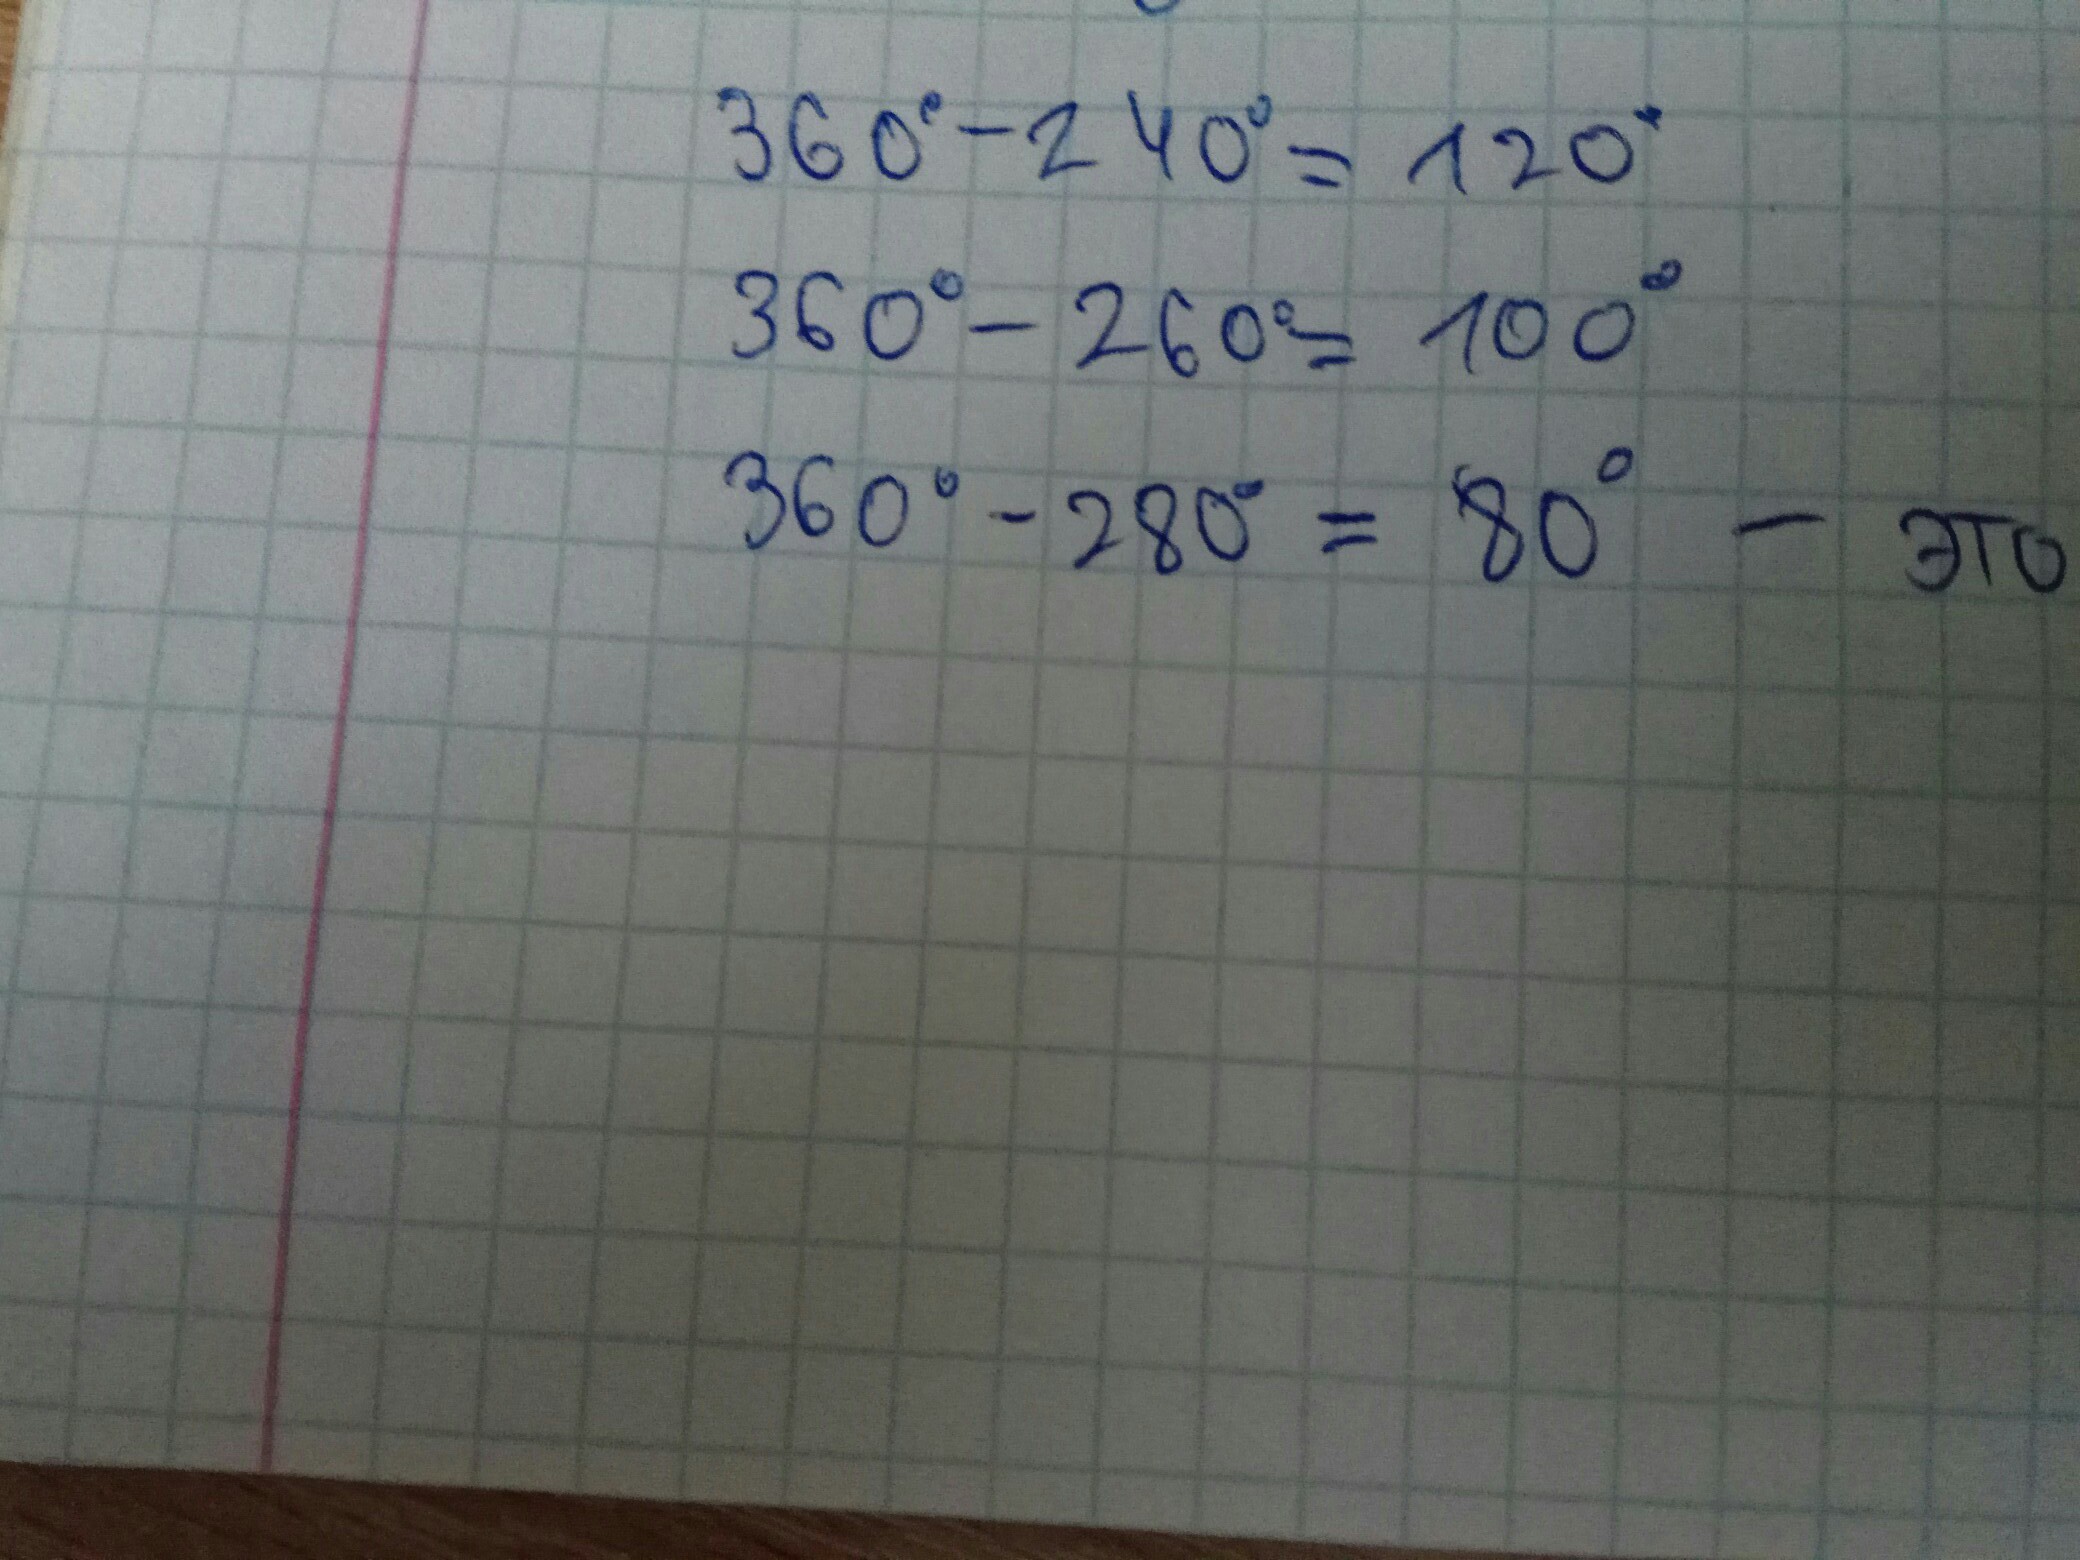 360° - 240° = 120°
360° - 260° = 100°
360° - 280° = 80° — это